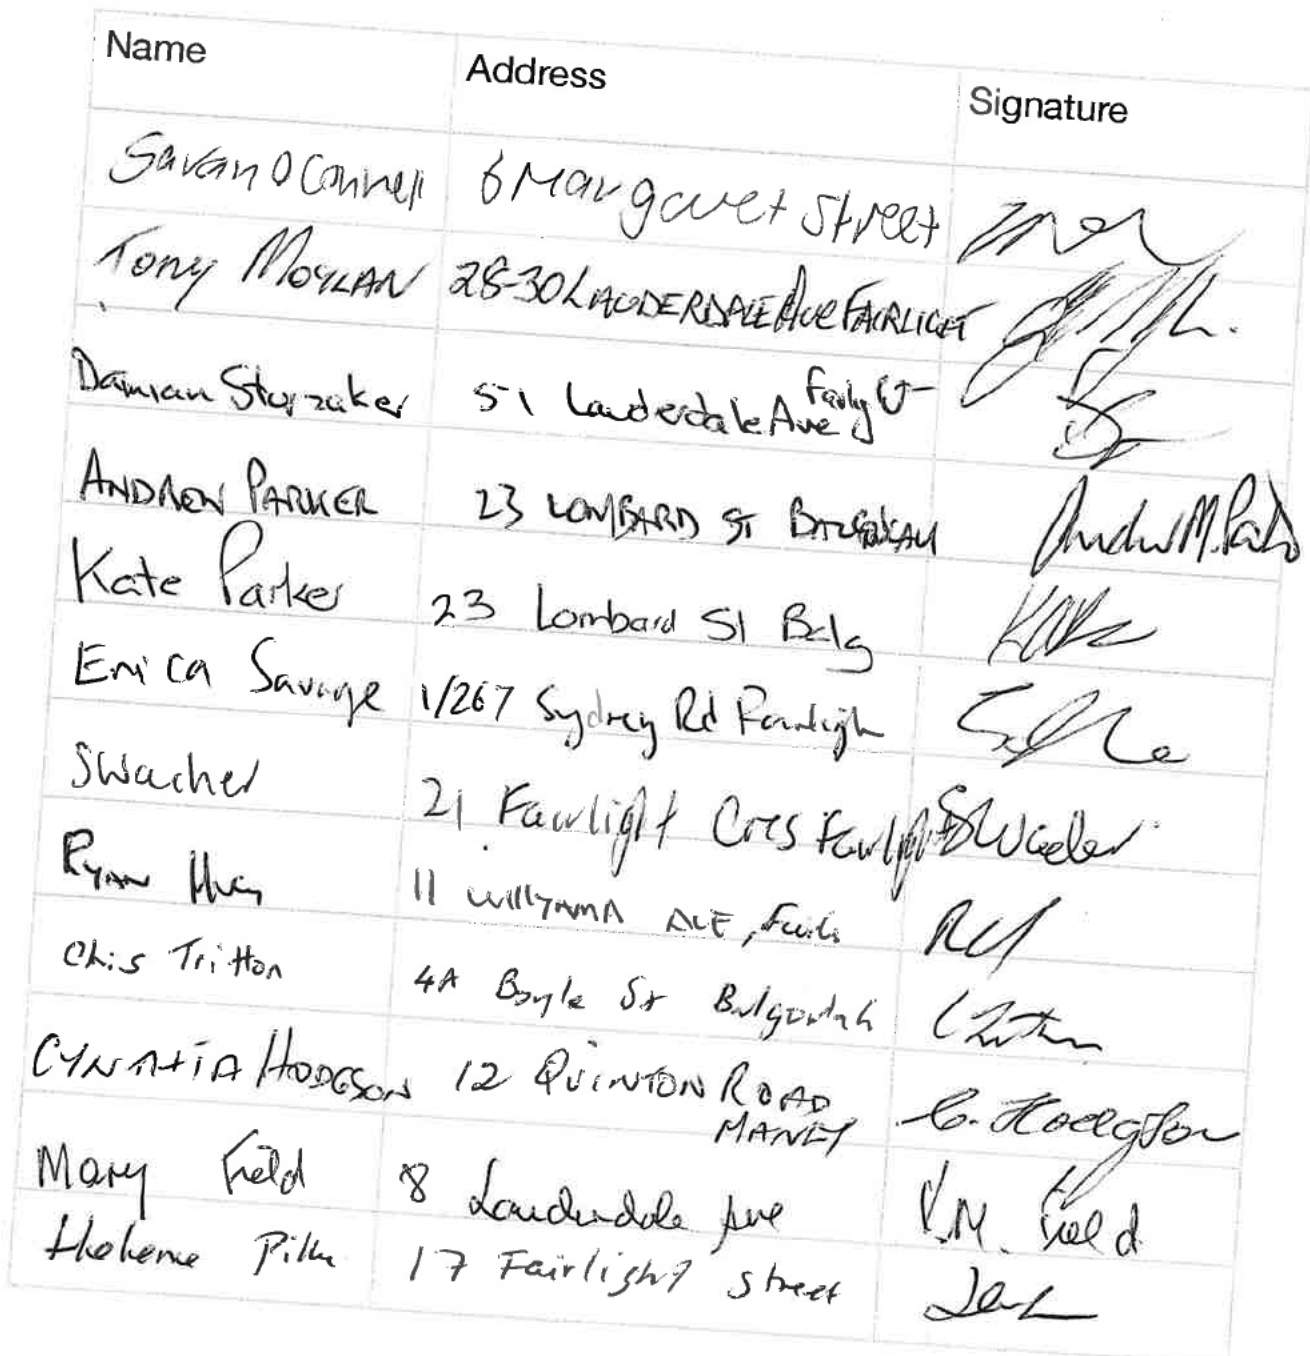 Name Address Signature
Savan O Connell 6 Margaret Street
Tony MOYLAN 28-30 LAUDERDALE Ave FAIRLIGHT
Damian Sturzaker 51 Lauderdale Ave
ANDREW PARKER 23 LOMBARD ST Andrew M. Parker
Kate Parker 23 Lombard St Balg
Erica Savage 1/267 Sydney Rd Fairligh
SWacher 21 Fairlight Cres Fairlight SWacher
RYAN 11 WILLYAMA AVE,
Chris Tritton 4A Boyle St Balgowlah
CYNTHIA HODGSON 12 QUINTON ROAD C. Hodgson
MANLY
Mary Field 8 Lauderdale Ave V.M. Field
17 Fairlight street